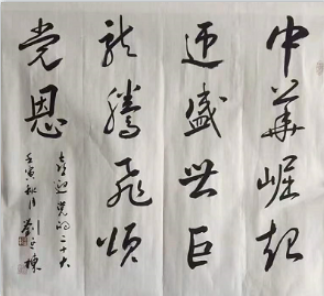 中華崛起
迎盛世巨
龙騰飛頌
党恩
喜迎党的二十大
壬寅秋月